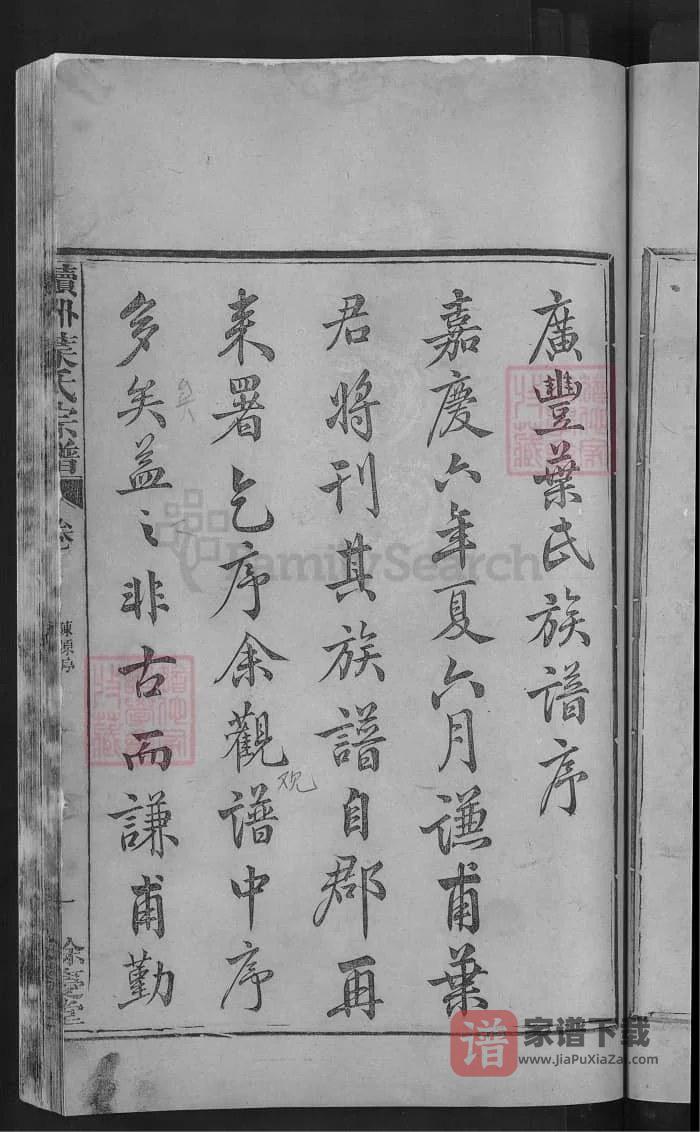 廣豐葉氏族譜序
嘉慶六年夏六月谦甫葉
君將刊其族譜自郡再
来署乞序余觀譜中序
观
多矣益之非古而謙甫勤
矣
葉氏宗譜
卷
一
餘慶堂
FamilySearch
谱 家谱下载
www.JiaPuXiaZai.com